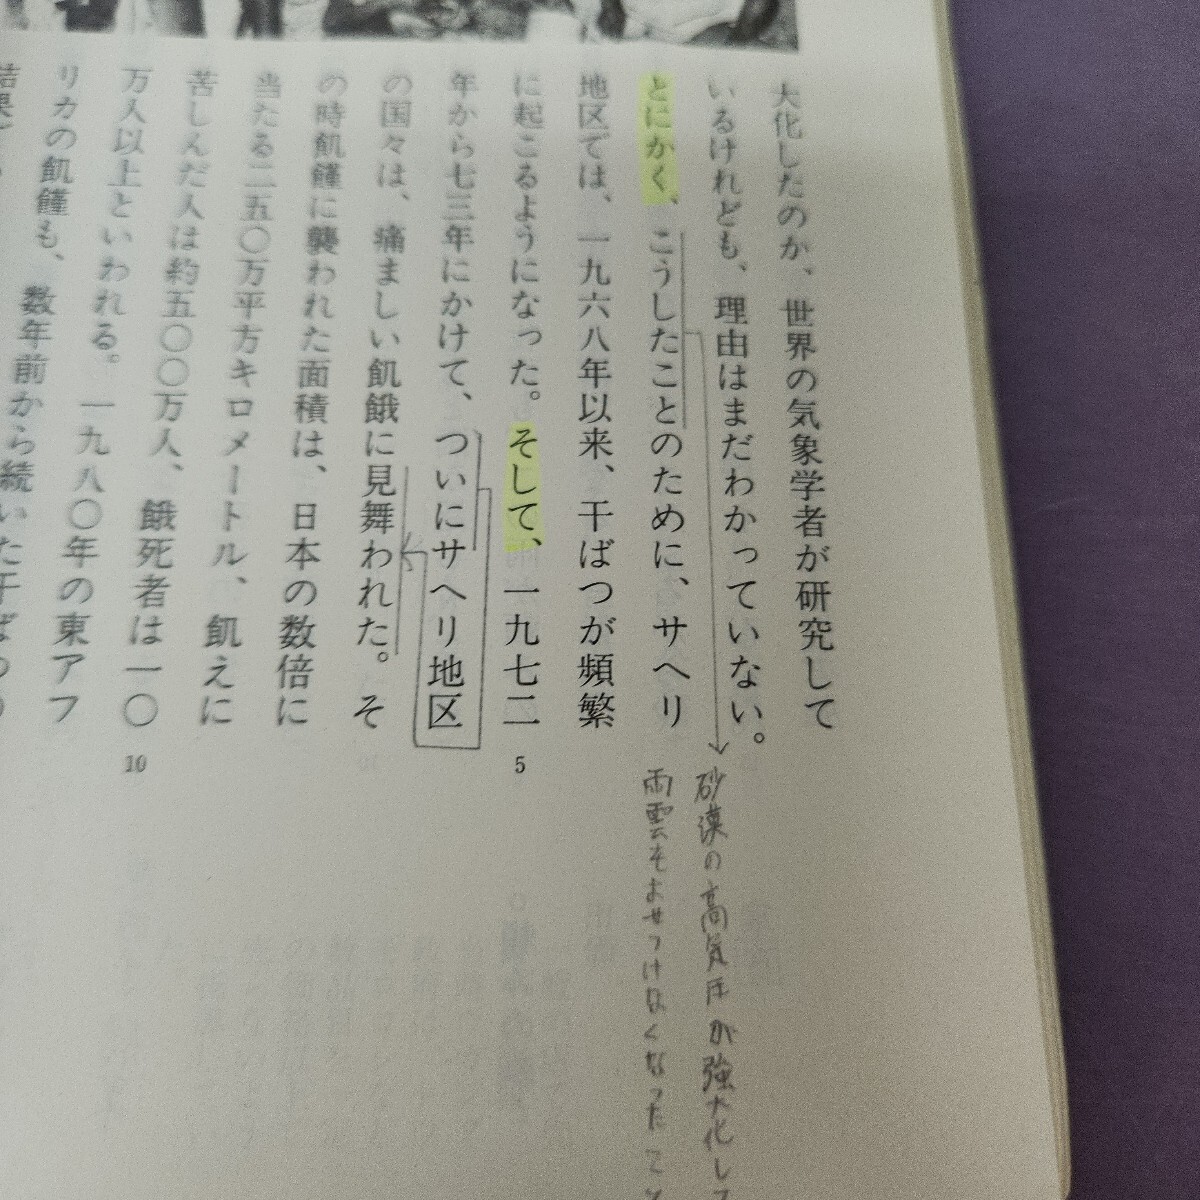 大化したのか、世界の気象学者が研究して
いるけれども、理由はまだわかっていない。
とにかく、こうしたことのために、サヘリ
地区では、一九六八年以来、干ばつが頻繁
に起こるようになった。そして、一九七二
年から七三年にかけて、ついにサヘリ地区
の国々は、痛ましい飢餓に見舞われた。そ
の時飢饉に襲われた面積は、日本の数倍に
当たる二五〇万平方キロメートル、飢えに
苦しんだ人は約五〇〇万人、餓死者は一〇
万人以上といわれる。一九八〇年の東アフ
リカの飢饉も、数年前から続いた干ばつの
結果で
5
10
砂漠の高気圧が強大化して
雨雲をよせつけなくなったこと